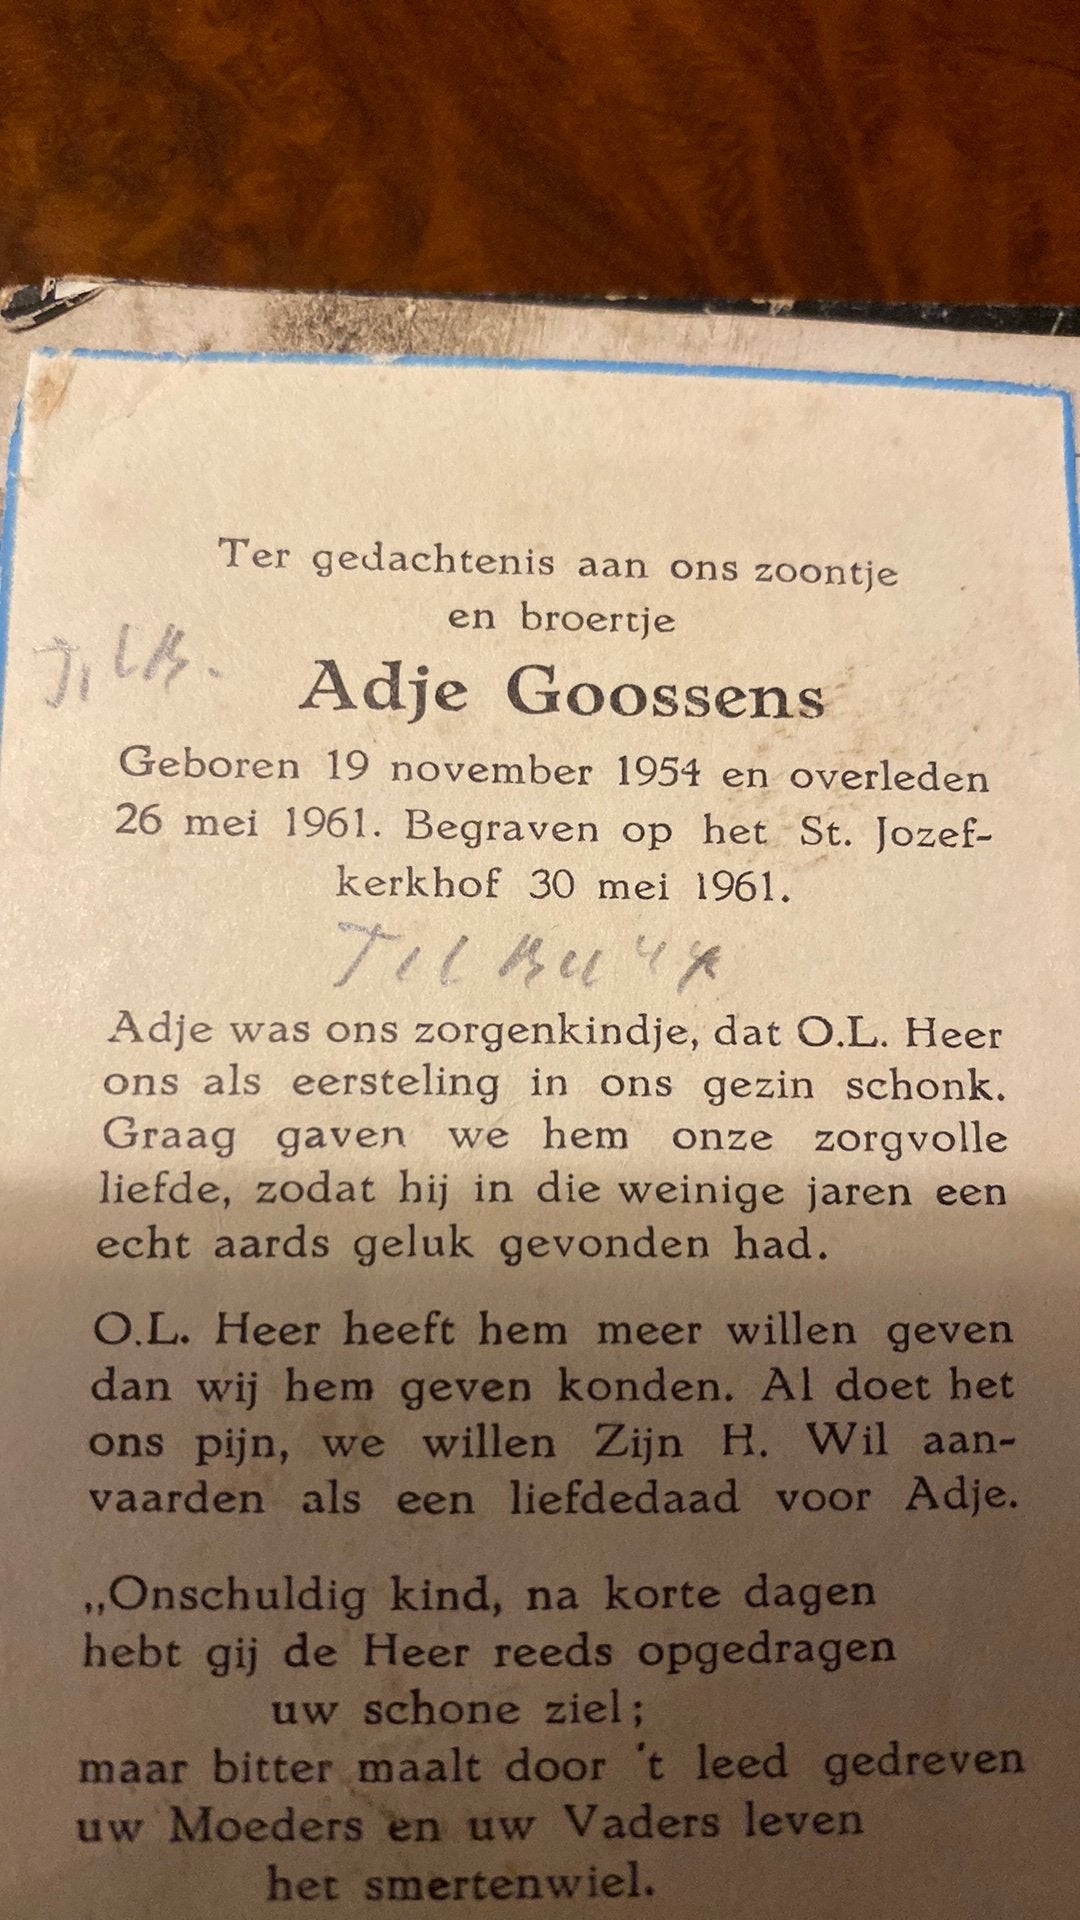 Ter gedachtenis aan ons zoontje
en broertje
Tilb.
Adje Goossens
Geboren 19 november 1954 en overleden
26 mei 1961. Begraven op het St. Jozef-
kerkhof 30 mei 1961.
TilBurg
Adje was ons zorgenkindje, dat O.L. Heer
ons als eersteling in ons gezin schonk.
Graag gaven we hem onze zorgvolle
liefde, zodat hij in die weinige jaren een
echt aards geluk gevonden had.
O.L. Heer heeft hem meer willen geven
dan wij hem geven konden. Al doet het
ons pijn, we willen Zijn H. Wil aan-
vaarden als een liefdedaad voor Adje.
„Onschuldig kind, na korte dagen
hebt gij de Heer reeds opgedragen
uw schone ziel;
maar bitter maalt door 't leed gedreven
uw Moeders en uw Vaders leven
het smertenwiel.